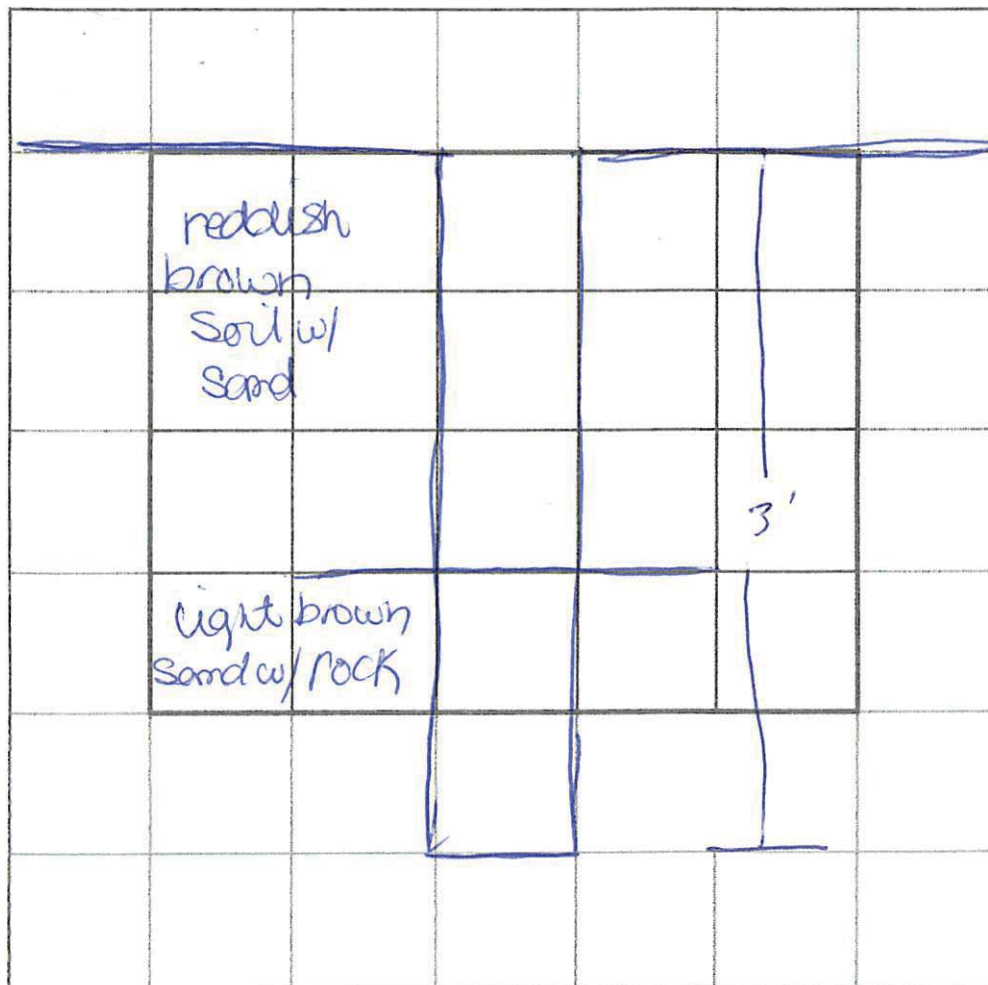 reddish
brown
Soil w/
Sand
3'
light brown
sand w/ rock